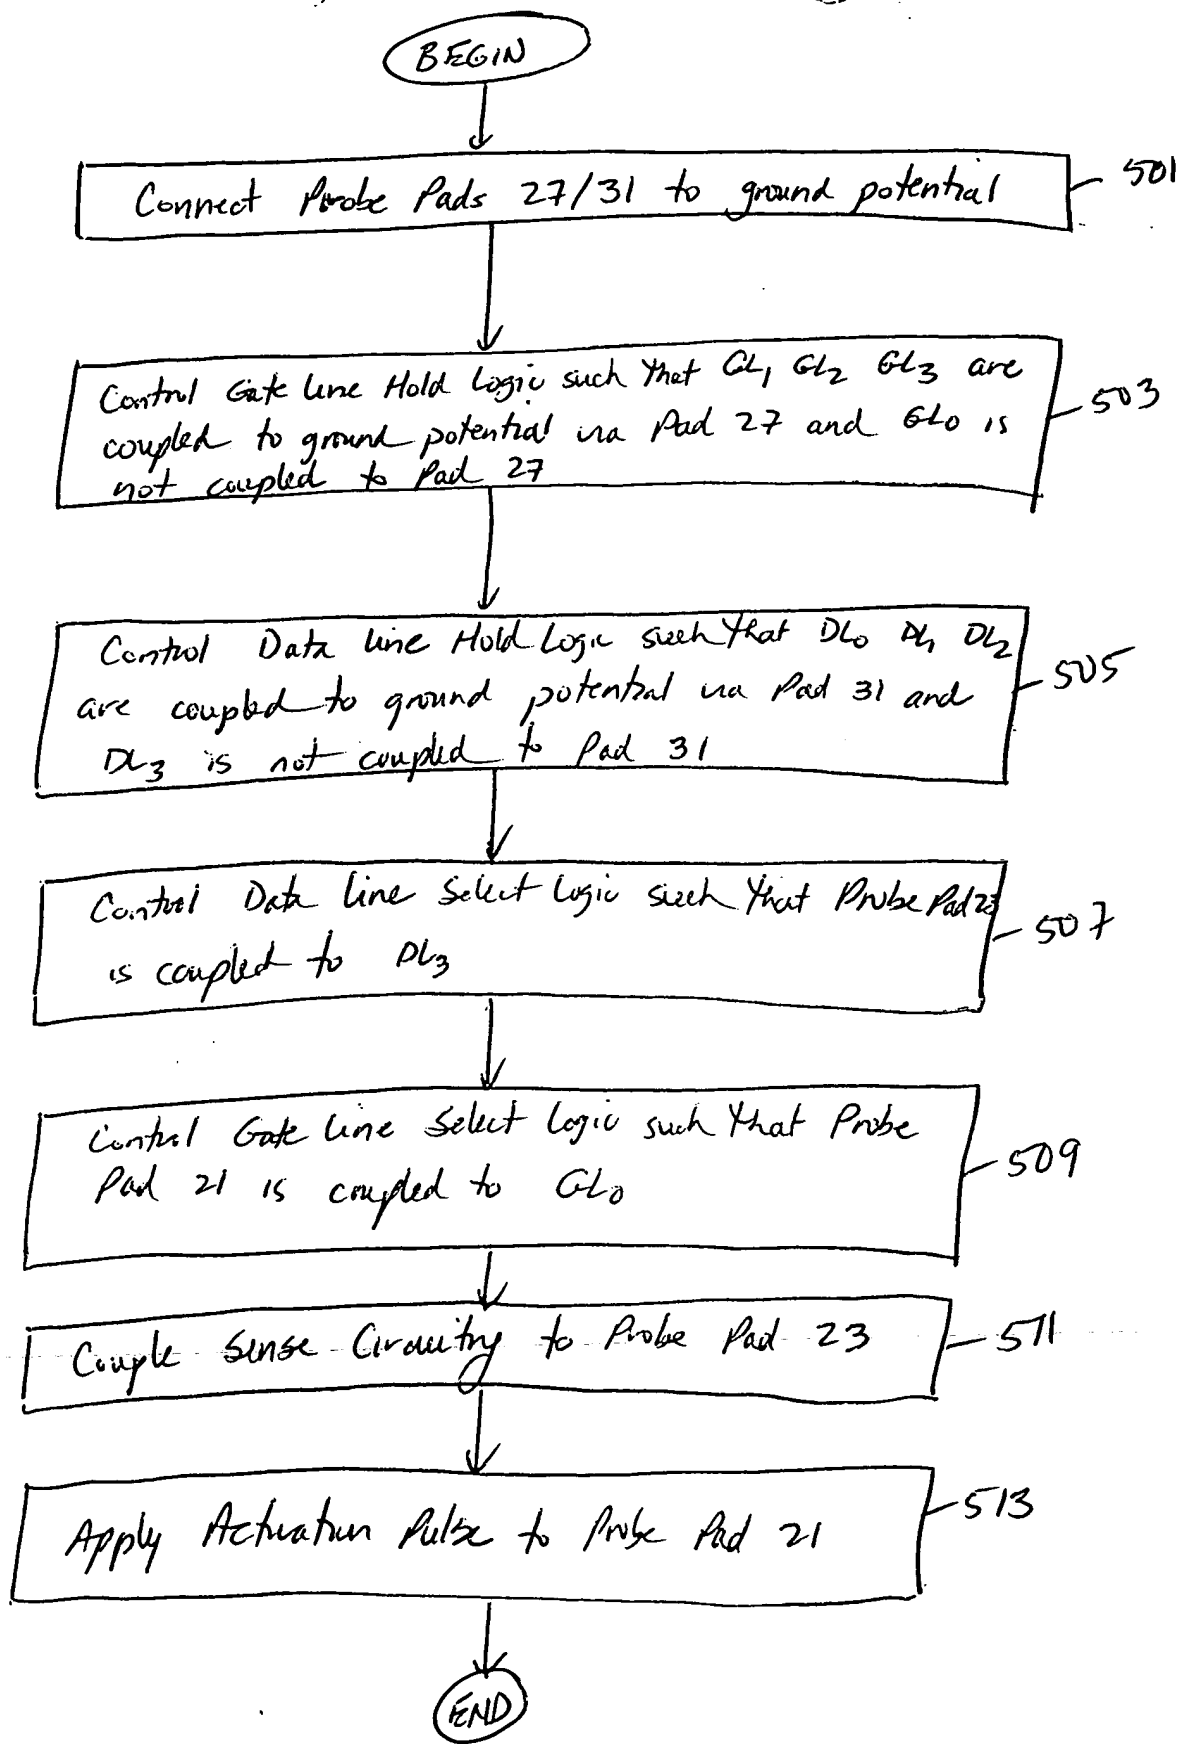 BEGIN
Connect Probe Pads 27/31 to ground potential
501
Control Gate Line Hold Logic such that GL1 GL2 GL3 are
coupled to ground potential via Pad 27 and GL0 is
not coupled to Pad 27
503
Control Data Line Hold Logic such that DL0 DL1 DL2
are coupled to ground potential via Pad 31 and
DL3 is not coupled to Pad 31
505
Control Data Line Select Logic such that Probe Pad 23
is coupled to DL3
507
Control Gate Line Select Logic such that Probe
Pad 21 is coupled to GL0
509
Couple Sense Circuitry to Probe Pad 23
511
Apply Actuation Pulse to Probe Pad 21
513
END